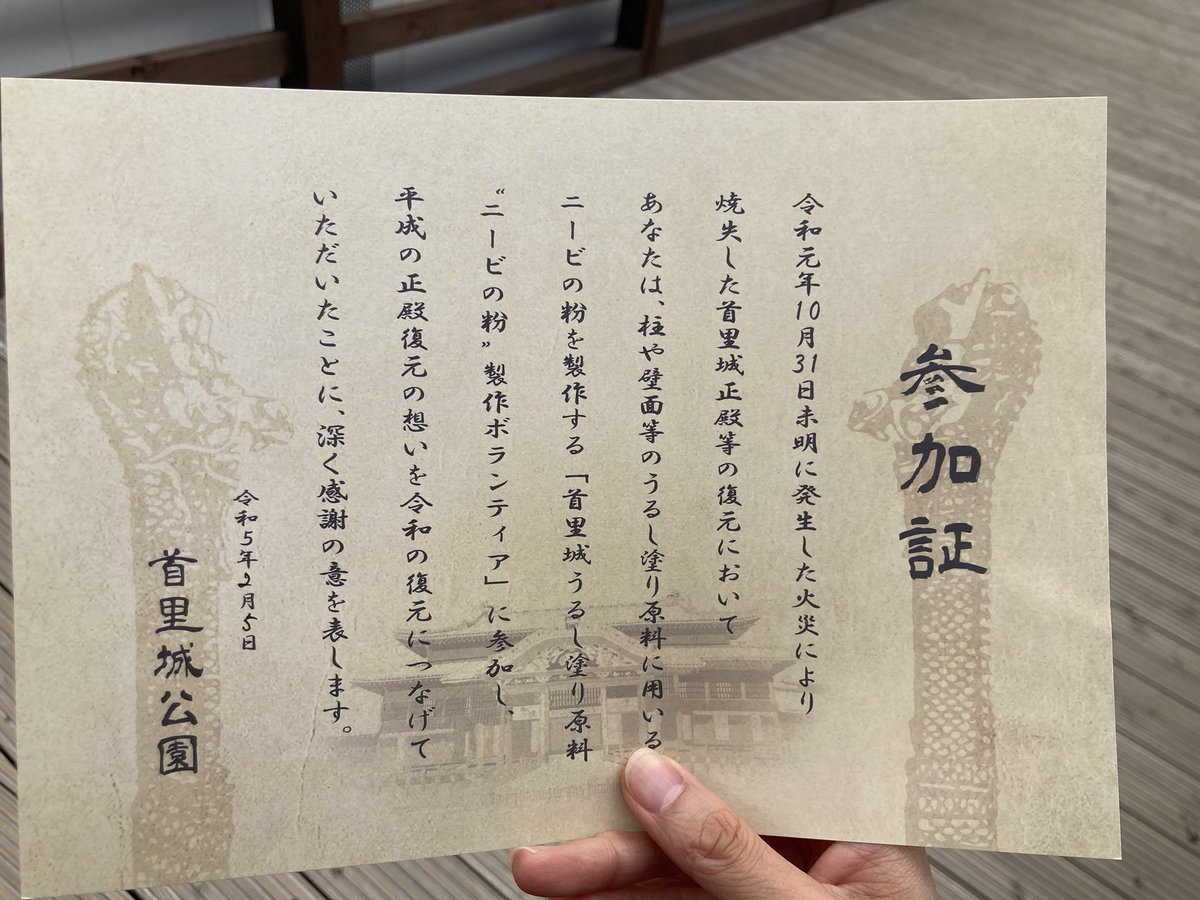 参加証
令和元年10月31日未明に発生した火災により
焼失した首里城正殿等の復元において
あなたは、柱や壁面等のうるし塗り原料に用いる
ニービの粉を製作する「首里城うるし塗り原料
“ニービの粉”製作ボランティア」に参加し、
平成の正殿復元の想いを令和の復元につなげて
いただいたことに、深く感謝の意を表します。
令和5年2月5日
首里城公園